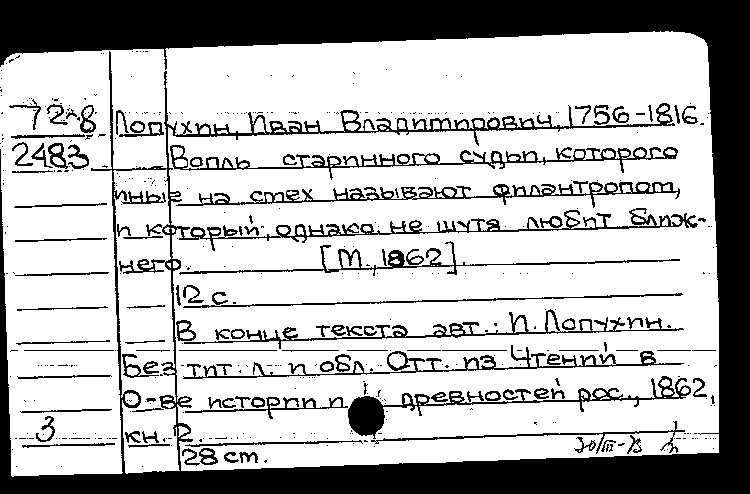 72-8 Лопухин, Иван Владимирович, 1756-1816.
2483 Вопль старинного судьи, которого
иные на смех называют филантропом,
и который, однако, не шутя любит ближ-
него. [М., 1862].
12 с.
В конце текста авт.: И. Лопухин.
Без тит. л. и обл. Отт. из Чтений в
О-ве истории и древностей рос., 1862,
3 кн. 2.
28 cm.